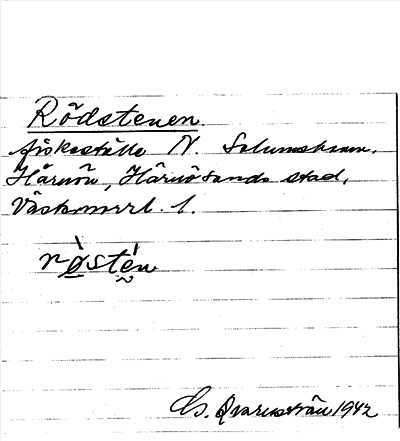 Rödstenen.
fiskeställe N. Solumshamn,
Härnön, Härnösands stad,
Västernorrl. l.
røstén
Cs. Qvarnström 1942